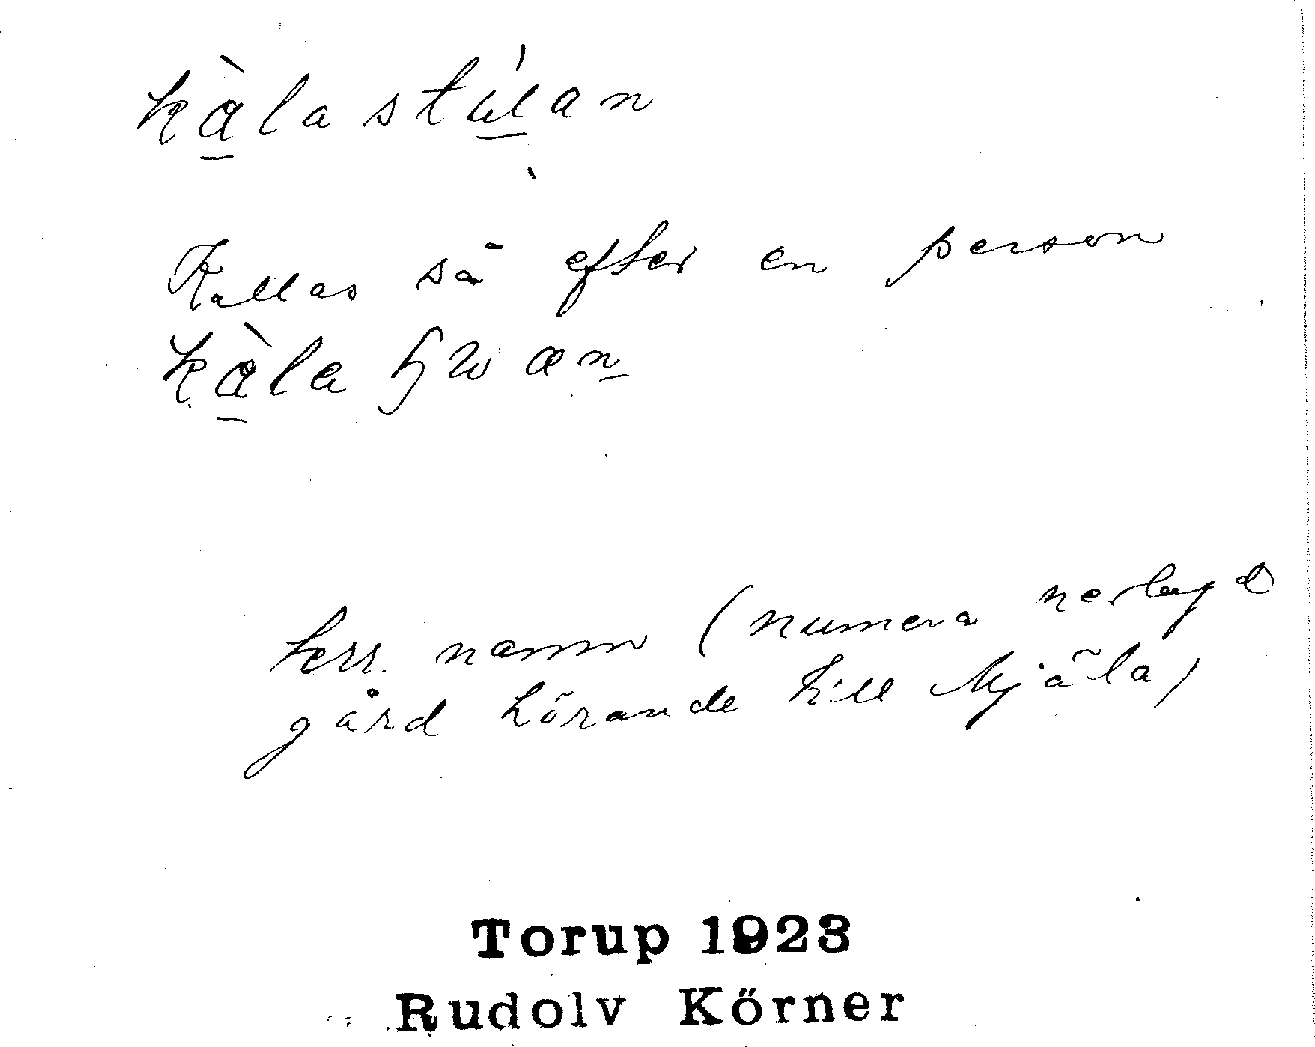 kàlastúlan
Kallas så efter en person
kàla
terr. namn (numera nerlagd
gård hörande till Mjäla)
Torup 1923
Rudolv Körner